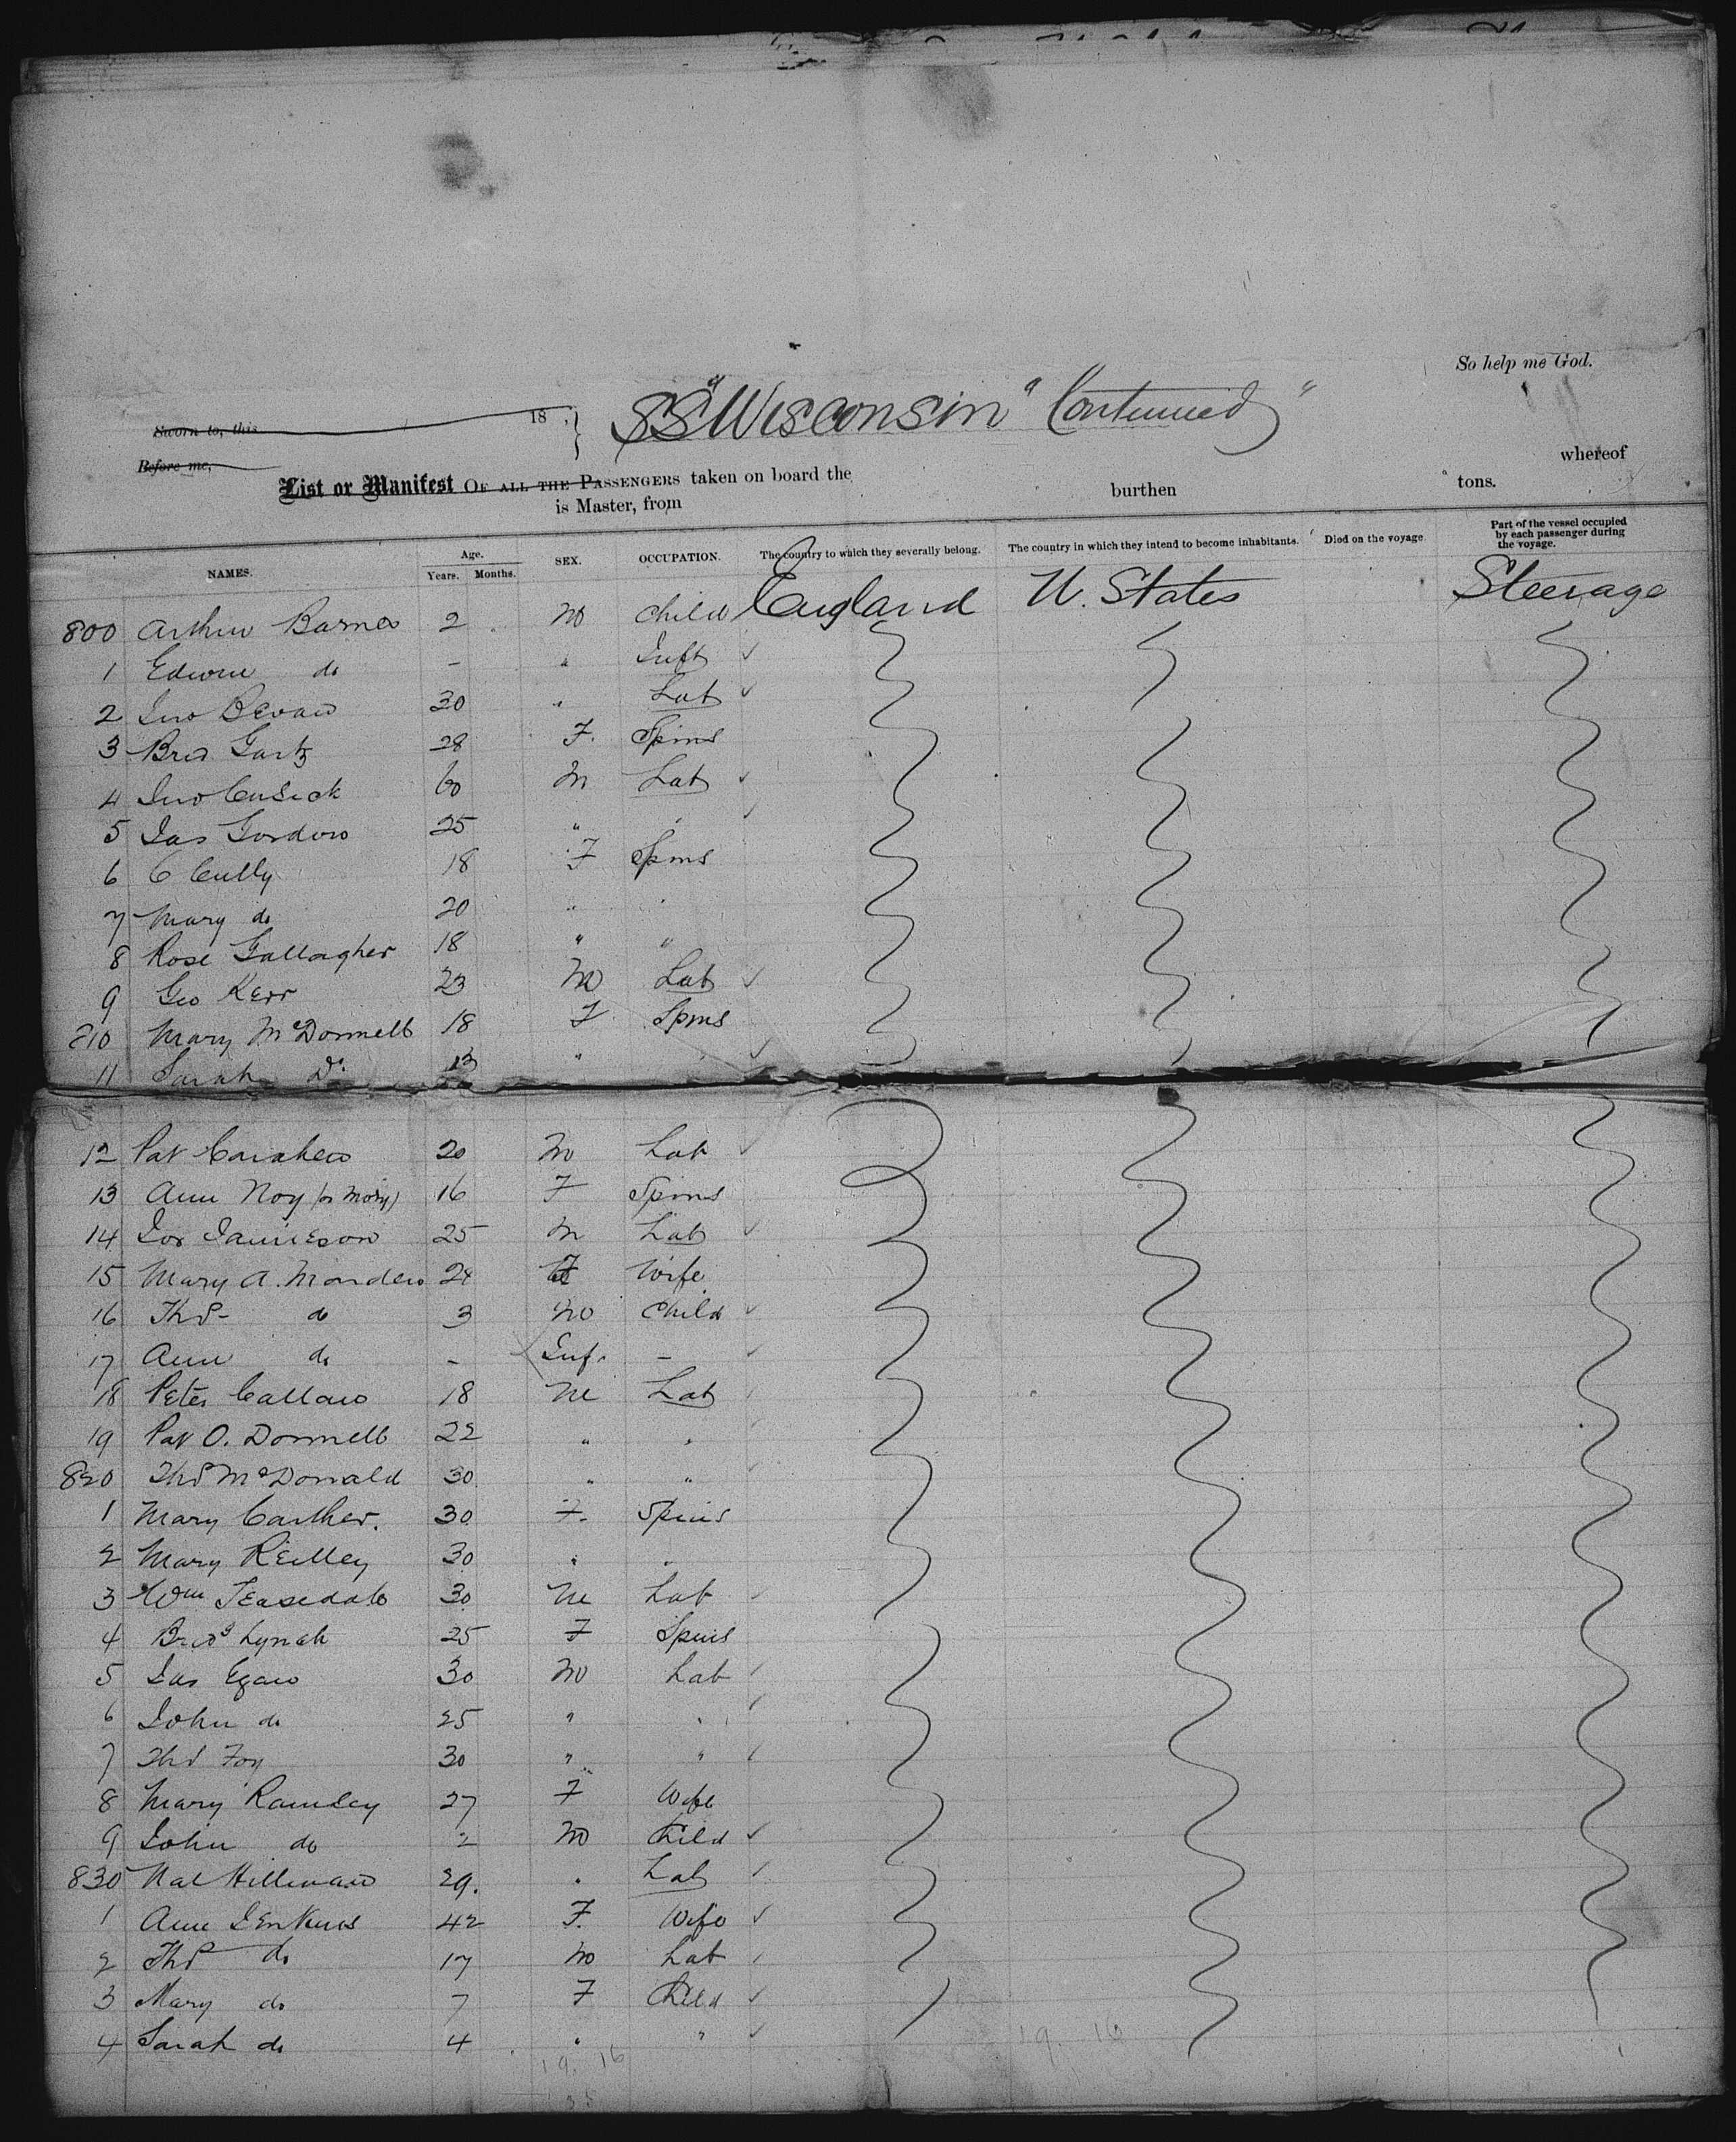 So help me God.
Sworn to, this 18 . } SS "Wisconsin" (Continued)
Before me, whereof
List or Manifest OF ALL THE PASSENGERS taken on board the burthen tons.
is Master, from
NAMES. Age. Years. Months. SEX. OCCUPATION. The country to which they severally belong. The country in which they intend to become inhabitants. Died on the voyage. Part of the vessel occupied by each passenger during the voyage.
800 Arthur Barnes 2 M Child England U. States Steerage
1 Edwin do - " Inft
2 Jno Bevan 30 " Lab
3 Brid Gartz 28 F. Spins
4 Jno Cusick 60 M Lab
5 Jas Gordon 25 " "
6 C Cully 18 F Spins
7 Mary do 20 " "
8 Rose Gallagher 18 " "
9 Geo Kerr 23 M Lab
810 Mary McDonnell 18 F Spins
11 Sarah Do 13 "
12 Pat 20 M Lab
13 Ann Noy (or Mory) 16 F Spins
14 Jos Jamieson 25 M Lab
15 Mary A. 24 F Wife
16 Thos do 3 M Child
17 Ann do - Inf. -
18 Peter Callan 18 M Lab
19 Pat O. Donnell 22 " "
820 Thos McDonald 30 " "
1 Mary Carther. 30 F. Spins
2 Mary Reilley 30 " "
3 Wm Teasedale 30 M Lab
4 Brid Lynch 25 F Spins
5 Jas Egan 30 M Lab
6 John do 25 " "
7 Thos Foy 30 " "
8 Mary Ramsey 27 F Wife
9 John do 2 M Child
830 Nat Hillman 29. " Lab
1 Ann Jenkins 42 F. Wife
2 Thos do 17 M Lab
3 Mary do 7 F Child
4 Sarah do 4 " "
19. 16 19 16